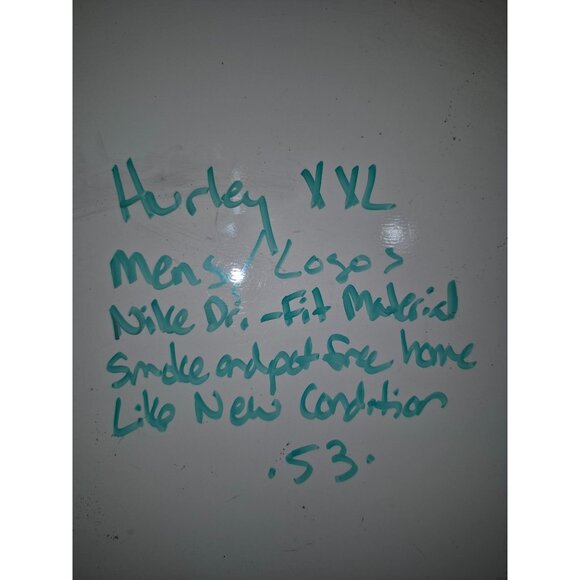 Hurley XXL
Mens / Logos
Nike Dri.-Fit Material
Smoke and pot free home
Like New Condition
.53.